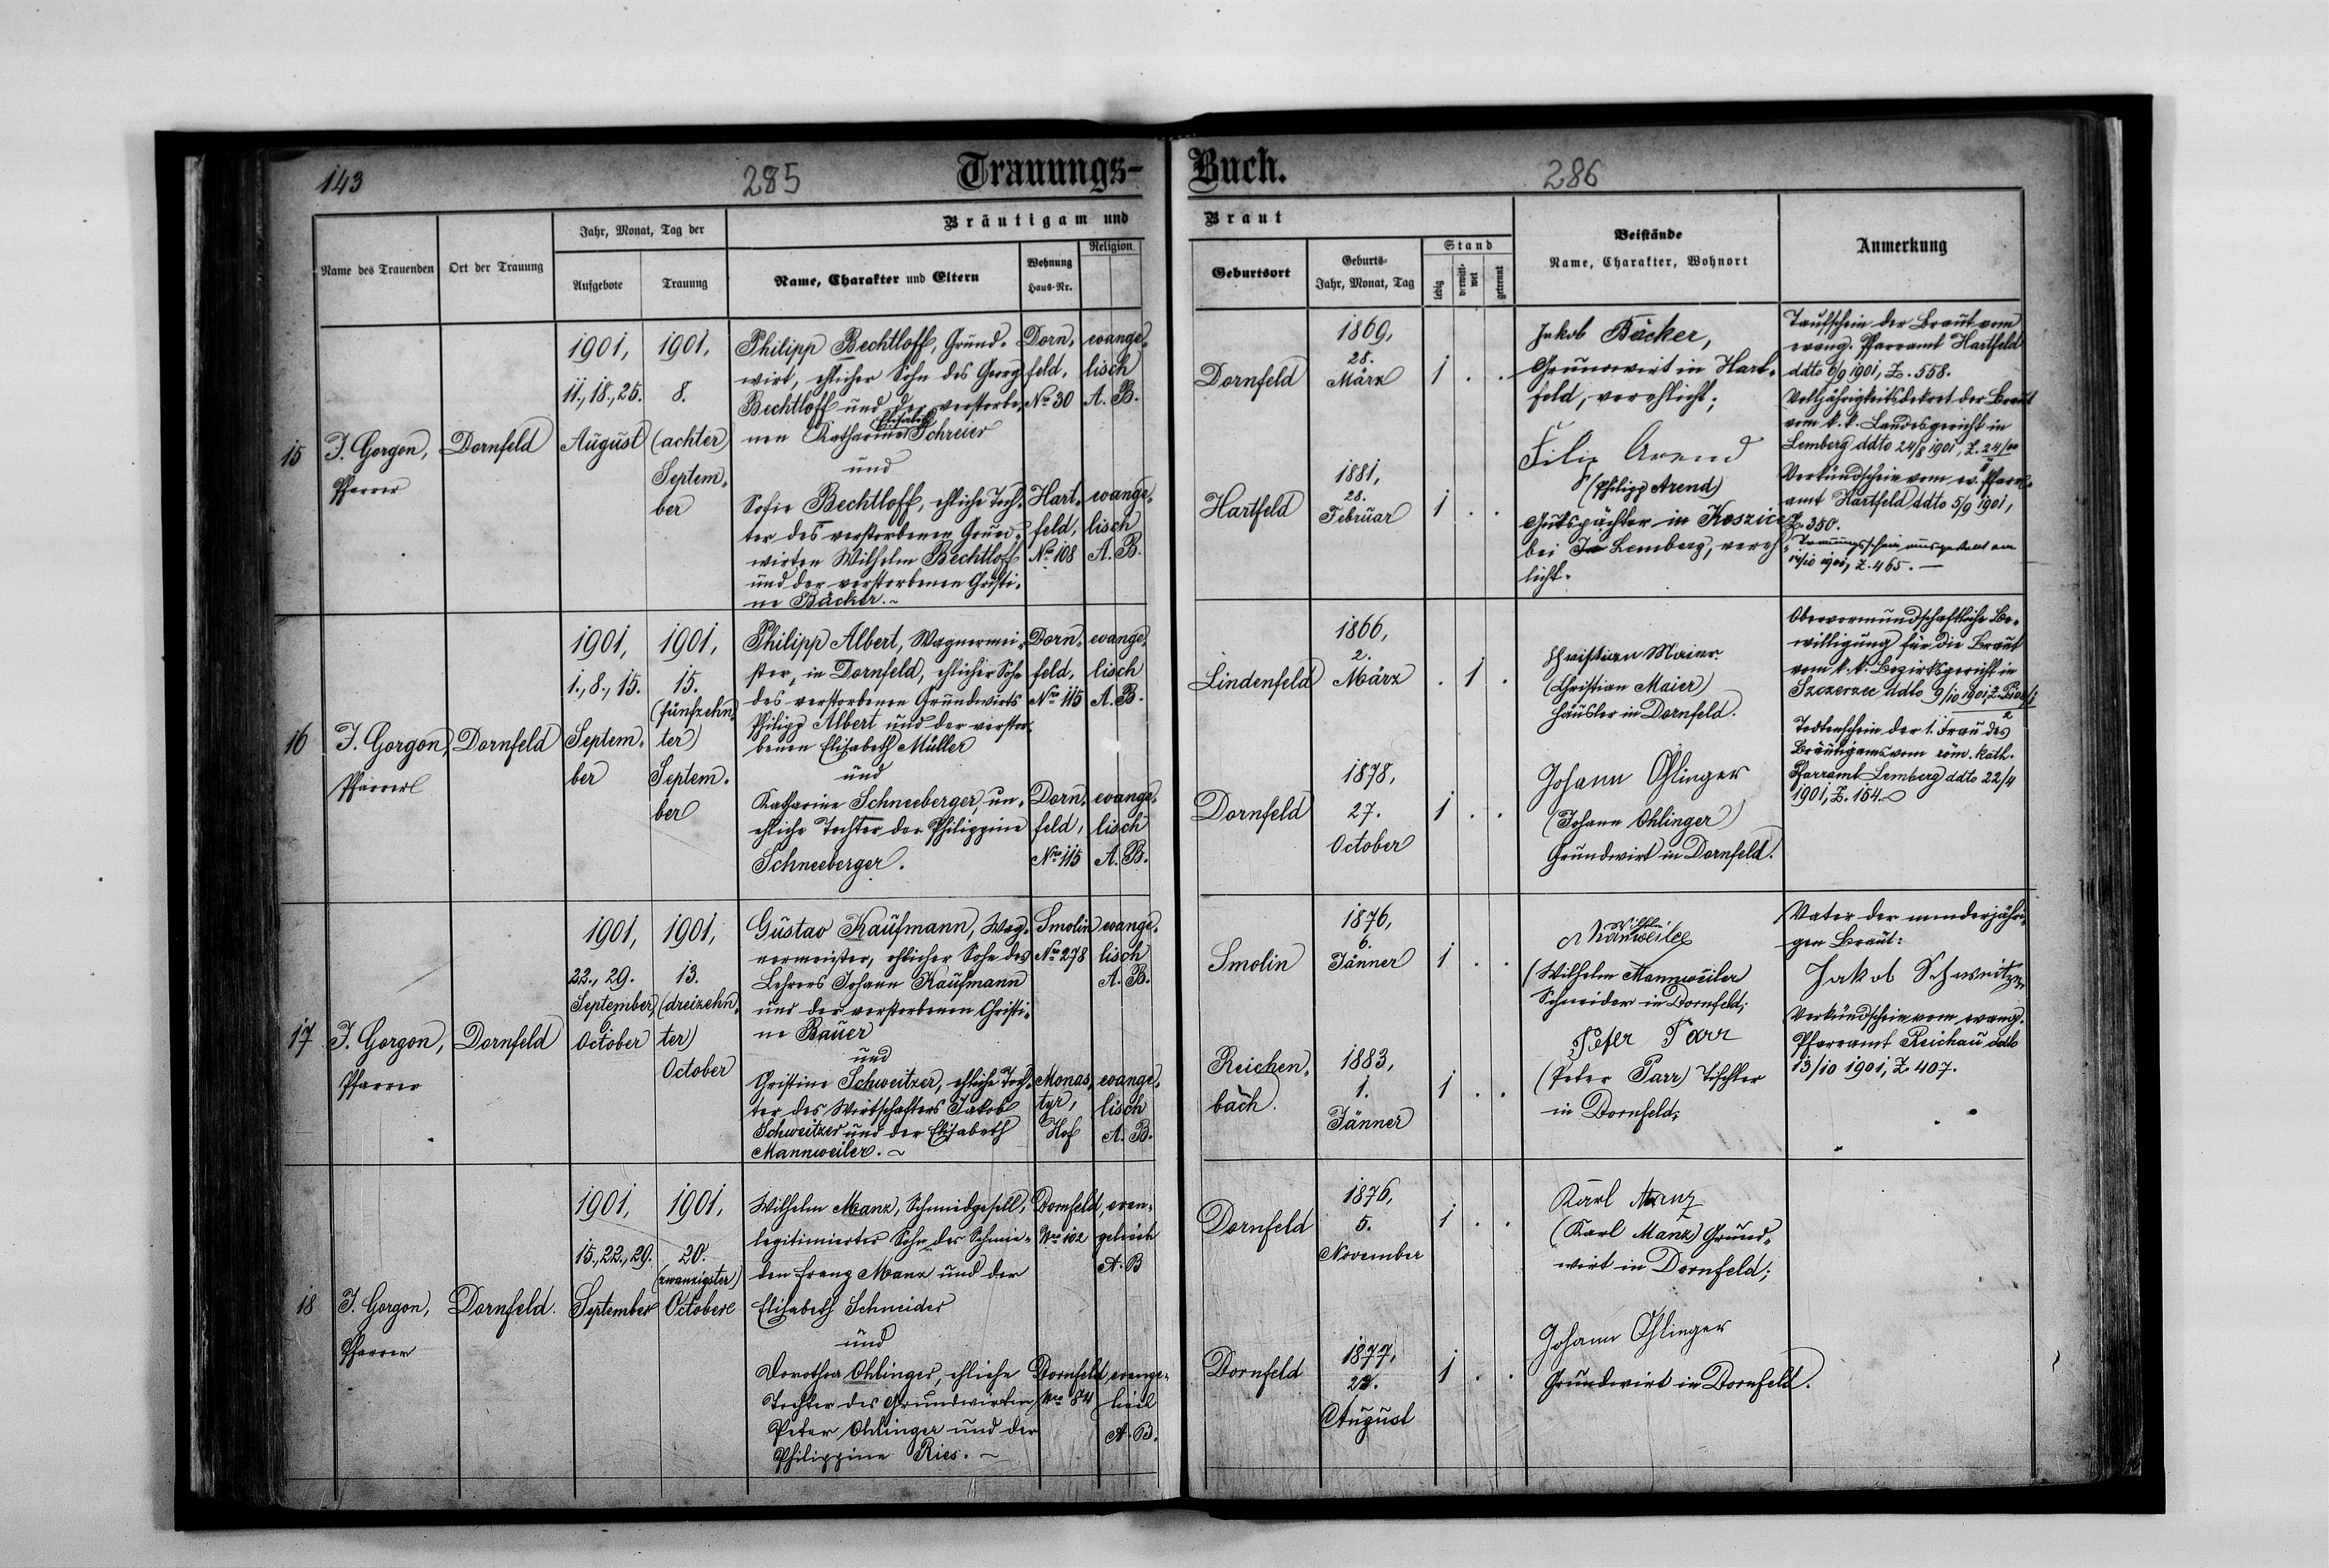 143
285
Trauungs-
Buch.
286
Name des Trauenden
Ort der Trauung
Jahr, Monat, Tag der
Aufgebote
Trauung
Bräutigam und
Name, Charakter und Eltern
Wohnung
Haus-Nr.
Religion
Braut
Geburtsort
Geburts-
Jahr, Monat, Tag
Stand
ledig
verwitt-
wet
getrennt
Beistände
Name, Charakter, Wohnort
Anmerkung
15
J. Gorgon,
Pfarrer
Dornfeld
1901,
11., 18., 25.
August
1901,
8.
(achter)
Septem-
ber
Philipp Bechtloff, Grund-
wirt, ehlicher Sohn des Georg
Bechtloff und der verstorbe-
Elisabeth
nen Katharine Schreier
und
Sofie Bechtloff, ehliche Toch-
ter des verstorbenen Grund-
wirten Wilhelm Bechtloff
und der verstorbenen Christi-
ne Bäcker.~
Dorn-
feld,
No 30
Hart-
feld,
No 108
evange-
lisch
A. B.
evange-
lisch
A. B.
Dornfeld
1869,
28.
März
1 . .
Hartfeld
1881,
28.
Februar
1 . .
Jakob Bäcker,
Grundwirt in Hart-
feld, verehlicht;
Filip Arend
(Philipp Arend)
Gutspächter in Koszice
bei Lemberg, vereh-
licht.
Taufschein der Braut vom
evang. Pfarramt Hartfeld
ddto 6/9 1901, Z. 558.
Volljährigkeitsdekret der Braut
vom k. k. Landesgericht in
Lemberg ddto 24/8 1901, Z.
Verkündschein vom ev. Pfarr-
amt Hartfeld ddto 5/9 1901,
Z. 350.
Trauungsschein ausgestellt am
14/10 1901, Z. 465. —
16
J. Gorgon,
Pfarrer
Dornfeld
1901,
1., 8., 15.
Septem-
ber
1901,
15.
(fünfzehn-
ter)
Septem-
ber
Philipp Albert, Wagnermei-
ster, in Dornfeld, ehlicher Sohn
des verstorbenen Grundwirts
Philipp Albert und der verstor-
benen Elisabeth Müller
und
Katharine Schneeberger, un-
ehliche Tochter der Philippine
Schneeberger.
Dorn-
feld,
Nro 115
Dorn-
feld,
Nro 115
evange-
lisch
A. B.
evange-
lisch
A. B.
Lindenfeld
1866,
2.
März
. 1 .
Dornfeld
1878,
27.
October
1 . .
Christian Maier
(Christian Maier)
Häusler in Dornfeld.
Johann Ohlinger
(Johann Ohlinger)
Grundwirt in Dornfeld.
Obervormundschaftliche Be-
willigung für die Braut
vom k. k. Bezirksgericht in
Szczerzec ddto 9/10 1901,
Todtenschein der 1. Frau des
Bräutigams vom röm. kath.
Pfarramt Lemberg ddto 22/4
1901, Z. 154.
17
J. Gorgon,
Pfarrer
Dornfeld
1901,
22., 29.
September,
6.
October
1901,
13.
(dreizehn-
ter)
October
Gustav Kaufmann, Wag-
nermeister, ehlicher Sohn des
Lehrers Johann Kaufmann
und der verstorbenen Christi-
ne Bauer
und
Christine Schweitzer, ehliche Toch-
ter des Wirtschafters Jakob
Schweitzer und der Elisabeth
Mannweiler.~
Smolin
No 278
Monas-
tyr,
Hof
evange-
lisch
A. B.
evange-
lisch
A. B.
Smolin
1876,
6.
Jänner
1 . .
Reichen-
bach.
1883,
1.
Jänner
1 . .
Wilhelm
Manweiler
(Wilhelm Mannweiler)
Schneider in Dornfeld;
Peter Parr
(Peter Parr) Tischler
in Dornfeld;
Vater der minderjähri-
gen Braut:
Jakob Schweitzer
Verkündschein vom evang.
Pfarramt Reichau ddto
13/10 1901, Z. 407.
18
J. Gorgon,
Pfarrer
Dornfeld.
1901,
15., 22., 29.
September
1901,
20.
(zwanzigster)
October
Wilhelm Manz, Schmidgesell,
legitimierter Sohn des Schmie-
den Franz Manz und der
Elisabeth Schneider
und
Dorothea Ohlinger, ehliche
Tochter des Grundwirten
Peter Ohlinger und der
Philippine Ries.~
Dornfeld,
Nro 102
Dornfeld
Nro 84
evan-
gelisch
A. B
evange-
lisch
A. B.
Dornfeld
1876,
5.
November
1 . .
Dornfeld
1877,
August
1 . .
Karl Manz
(Karl Manz) Grund-
wirt in Dornfeld;
Johann Ohlinger
Grundwirt in Dornfeld.